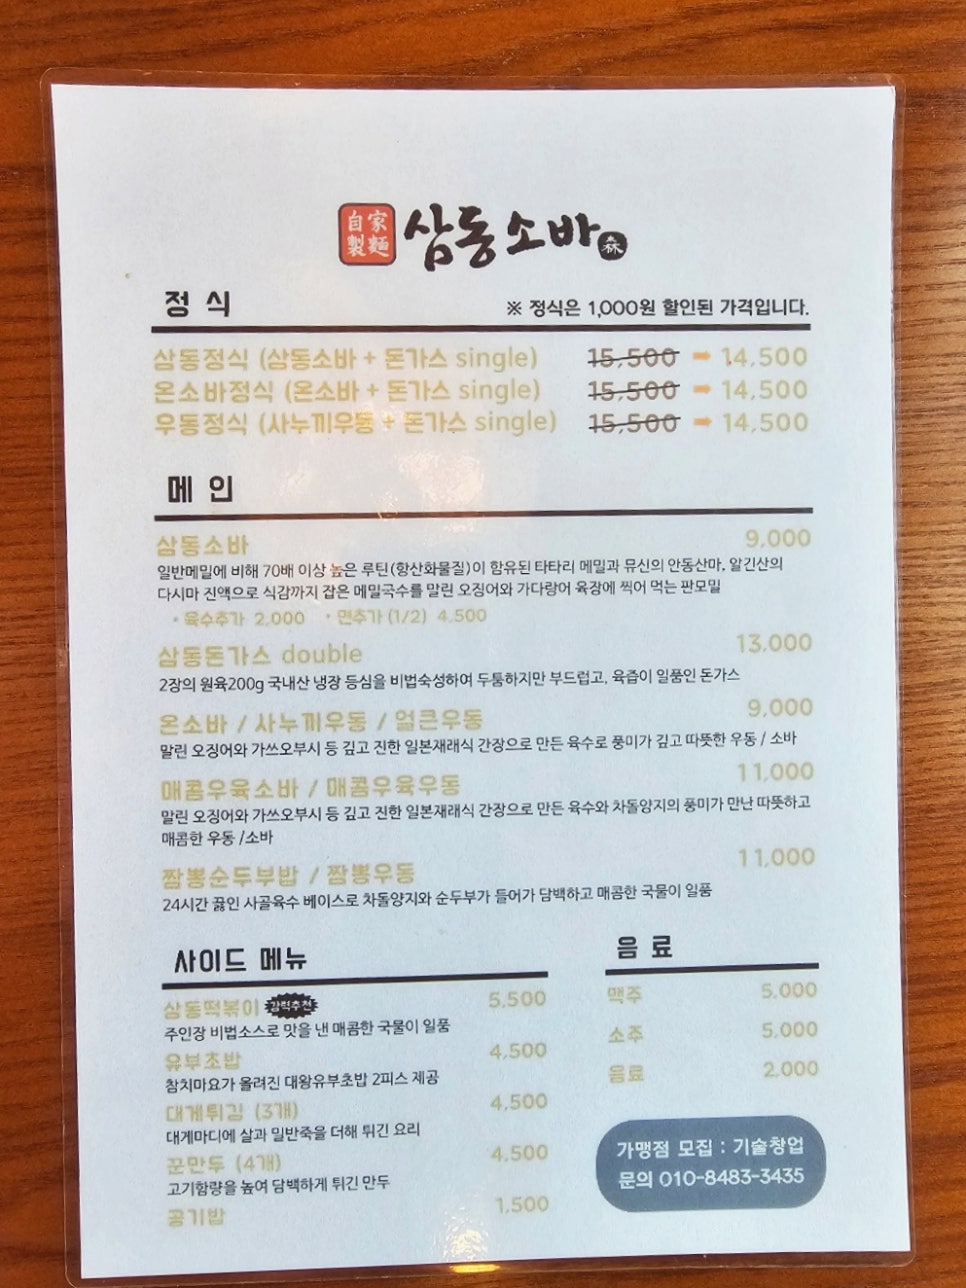 自家製麵 삼동소바 森
정 식
※ 정식은 1,000원 할인된 가격입니다.
삼동정식 (삼동소바 + 돈가스 single) 15,500 ➡ 14,500
온소바정식 (온소바 + 돈가스 single) 15,500 ➡ 14,500
우동정식 (사누끼우동 + 돈가스 single) 15,500 ➡ 14,500
메 인
삼동소바 9,000
일반메밀에 비해 70배 이상 높은 루틴(항산화물질)이 함유된 타타리 메밀과 뮤신의 안동산마, 알긴산의
다시마 진액으로 식감까지 잡은 메밀국수를 말린 오징어와 가다랑어 육장에 찍어 먹는 판모밀
• 육수추가 2,000 • 면추가 (1/2) 4,500
삼동돈가스 double 13,000
2장의 원육200g 국내산 냉장 등심을 비법숙성하여 두툼하지만 부드럽고, 육즙이 일품인 돈가스
온소바 / 사누끼우동 / 얼큰우동 9,000
말린 오징어와 가쓰오부시 등 깊고 진한 일본재래식 간장으로 만든 육수로 풍미가 깊고 따뜻한 우동 / 소바
매콤우육소바 / 매콤우육우동 11,000
말린 오징어와 가쓰오부시 등 깊고 진한 일본재래식 간장으로 만든 육수와 차돌양지의 풍미가 만난 따뜻하고
매콤한 우동 /소바
짬뽕순두부밥 / 짬뽕우동 11,000
24시간 끓인 사골육수 베이스로 차돌양지와 순두부가 들어가 담백하고 매콤한 국물이 일품
사이드 메뉴
삼동떡볶이 강력추천 5,500
주인장 비법소스로 맛을 낸 매콤한 국물이 일품
유부초밥 4,500
참치마요가 올려진 대왕유부초밥 2피스 제공
대게튀김 (3개) 4,500
대게마디에 살과 밀반죽을 더해 튀긴 요리
꾼만두 (4개) 4,500
고기함량을 높여 담백하게 튀긴 만두
공기밥 1,500
음 료
맥주 5,000
소주 5,000
음료 2,000
가맹점 모집 : 기술창업
문의 010-8483-3435